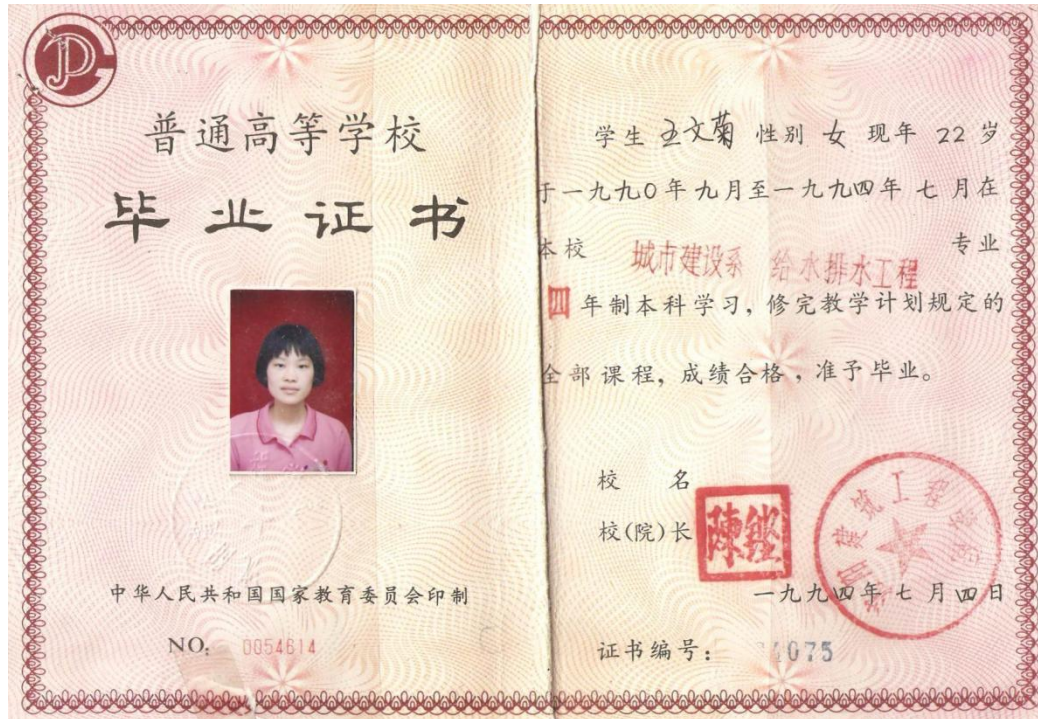 普通高等学校
毕业证书
中华人民共和国国家教育委员会印制
NO: 0054614
学生 王文菊 性别 女 现年 22 岁
于一九九〇年九月至一九九四年 七 月在
本校 城市建设系 给水排水工程 专业
四年制本科学习，修完教学计划规定的
全部课程，成绩合格，准予毕业。
校 名
校(院)长
建筑工程学
一九九四年七月四日
证书编号: 4075